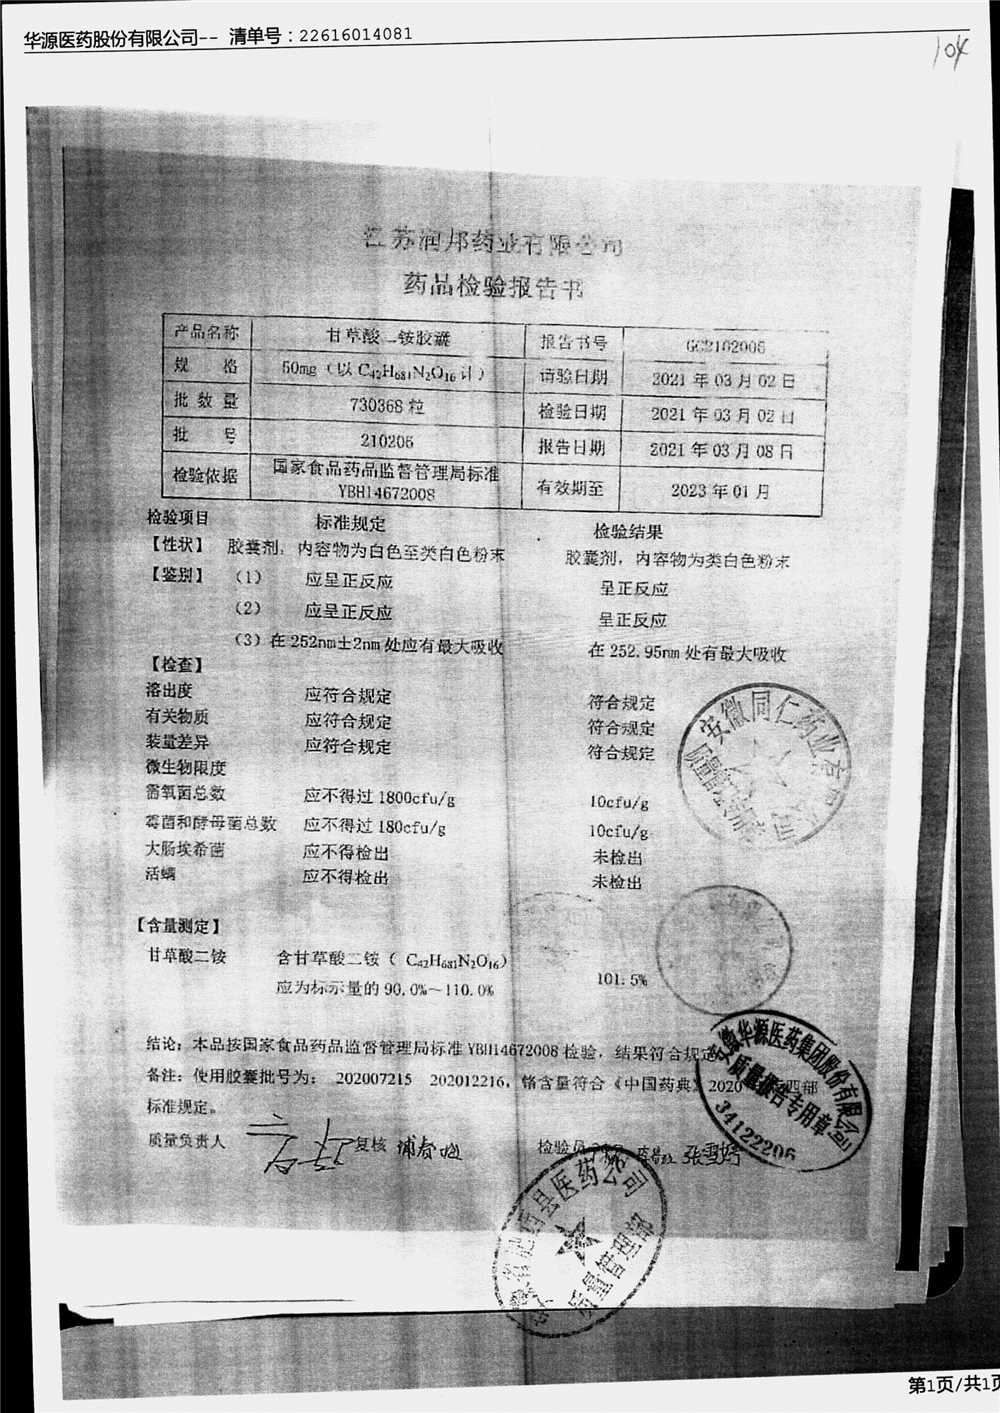 华源医药股份有限公司-- 清单号：22616014081
104
江苏润邦药业有限公司
药品检验报告书
产品名称 甘草酸二铵胶囊 报告书号 GC2102006
规 格 50mg（以C42H681N2O16计） 请验日期 2021年03月02日
批数量 730368粒 检验日期 2021年03月02日
批 号 210206 报告日期 2021年03月08日
检验依据 国家食品药品监督管理局标准 YBH14672008 有效期至 2023年01月
检验项目 标准规定 检验结果
【性状】 胶囊剂，内容物为白色至类白色粉末 胶囊剂，内容物为类白色粉末
【鉴别】（1） 应呈正反应 呈正反应
（2） 应呈正反应 呈正反应
（3）在252nm±2nm处应有最大吸收 在252.95nm处有最大吸收
【检查】
溶出度 应符合规定 符合规定
有关物质 应符合规定 符合规定
装量差异 应符合规定 符合规定
微生物限度
需氧菌总数 应不得过1800cfu/g 10cfu/g
霉菌和酵母菌总数 应不得过180cfu/g 10cfu/g
大肠埃希菌 应不得检出 未检出
活螨 应不得检出 未检出
安徽同仁药业有限公司
质量管理
【含量测定】
甘草酸二铵 含甘草酸二铵（C42H681N2O16）
应为标示量的90.0%～110.0% 101.5%
结论：本品按国家食品药品监督管理局标准YBH14672008检验，结果符合规定
备注：使用胶囊批号为：202007215 202012216，铬含量符合《中国药典》2020 四部
标准规定。
质量负责人 复核 检验员 张雪婷
安徽华源医药集团股份有限公司
质量报告专用章
34122206
肥西县医药公司
质量管理部
第1页/共1页